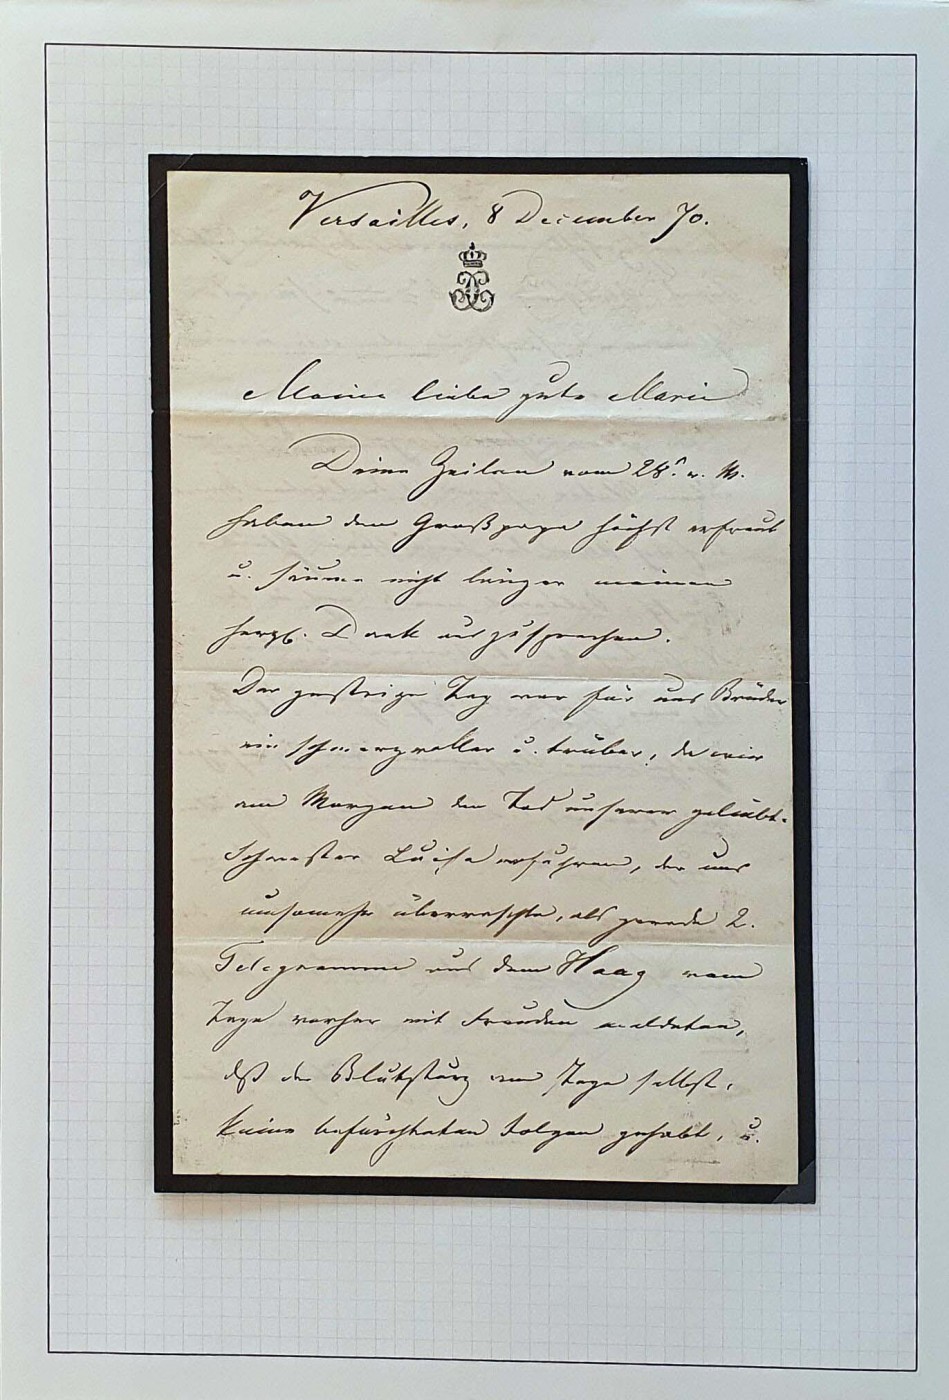 Versailles, 8 December 70.
Meine liebe gute Marie
Deine Zeilen vom 28t. v. M.
haben den Großpapa höchst erfreut
u. säume nicht länger meinen
herzl. Dank auszusprechen.
Der gestrige Tag war für uns Brüder
ein schmerzvoller u. trüber, da wir
am Morgen den Tod unserer geliebt.
Schwester Luise erfuhren, der uns
umsomehr überraschte, als gerade 2.
Telegramme aus dem Haag vom
Tage vorher mit Freuden meldeten,
daß der Blutsturz vom Tage selbst,
keine befürchteten Folgen gehabt, u.